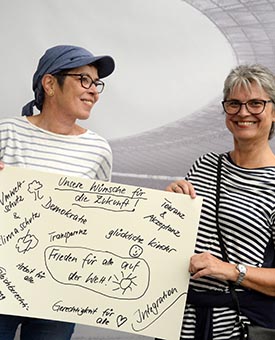 Unsere Wünsche für
die Zukunft!
Umwelt-
schutz
&
Klimaschutz
Demokratie
Toleranz
&
Akzeptanz
Transparenz
glückliche Kinder
Frieden für alle auf
der Welt!
Arbeit für
alle
Gerechtigkeit für
alle
Integration